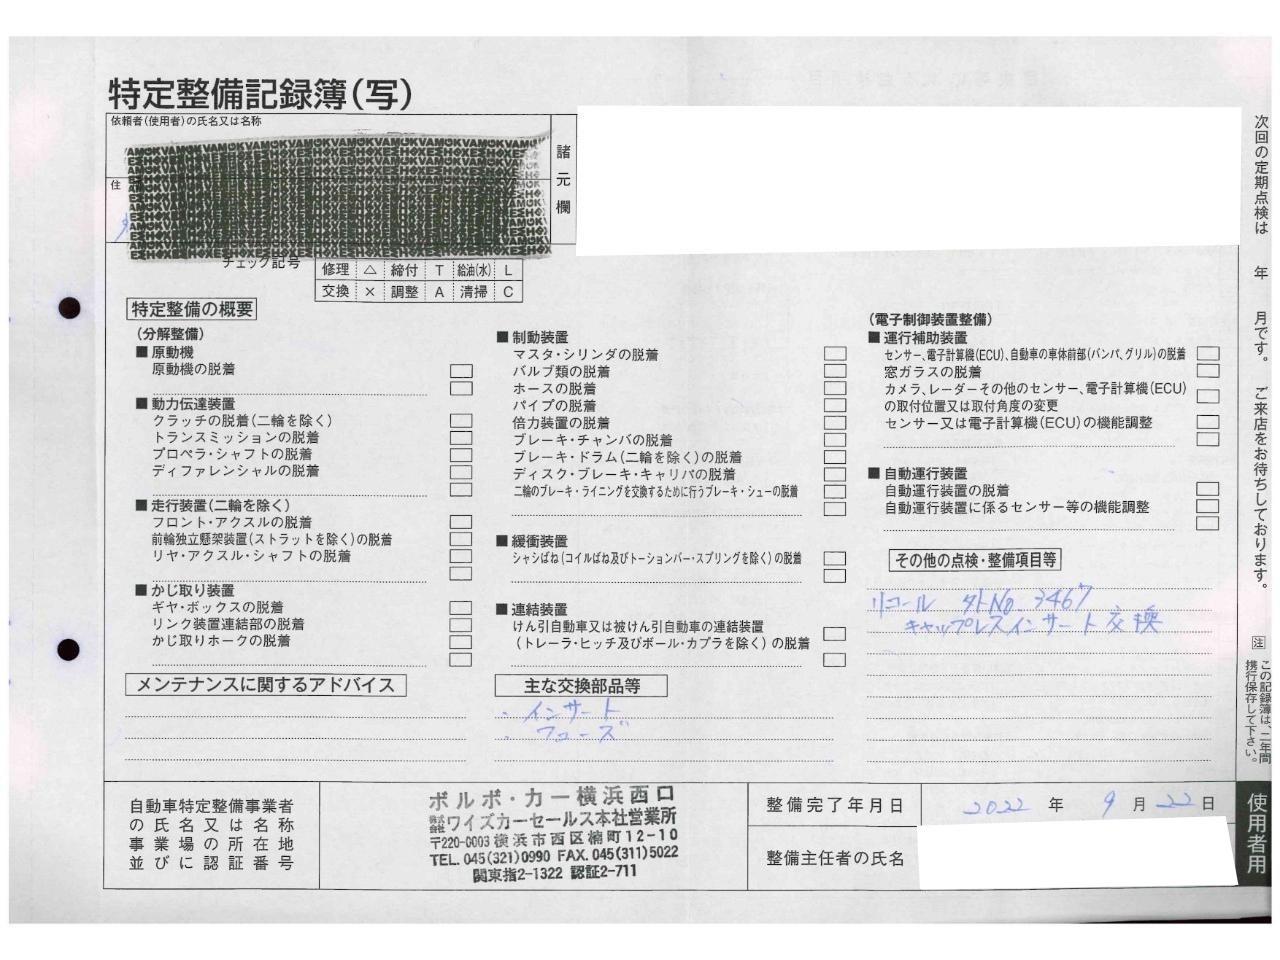 特定整備記録簿(写)
依頼者(使用者)の氏名又は名称
住
諸元欄
チェック記号
修理 △ 締付 T 給油(水) L
交換 × 調整 A 清掃 C
特定整備の概要
(分解整備)
■ 原動機
原動機の脱着
■ 動力伝達装置
クラッチの脱着(二輪を除く)
トランスミッションの脱着
プロペラ・シャフトの脱着
ディファレンシャルの脱着
■ 走行装置(二輪を除く)
フロント・アクスルの脱着
前輪独立懸架装置(ストラットを除く)の脱着
リヤ・アクスル・シャフトの脱着
■ かじ取り装置
ギヤ・ボックスの脱着
リンク装置連結部の脱着
かじ取りホークの脱着
■ 制動装置
マスタ・シリンダの脱着
バルブ類の脱着
ホースの脱着
パイプの脱着
倍力装置の脱着
ブレーキ・チャンバの脱着
ブレーキ・ドラム(二輪を除く)の脱着
ディスク・ブレーキ・キャリパの脱着
二輪のブレーキ・ライニングを交換するために行うブレーキ・シューの脱着
■ 緩衝装置
シャシばね(コイルばね及びトーションバー・スプリングを除く)の脱着
■ 連結装置
けん引自動車又は被けん引自動車の連結装置
(トレーラ・ヒッチ及びボール・カプラを除く)の脱着
(電子制御装置整備)
■ 運行補助装置
センサー、電子計算機(ECU)、自動車の車体前部(バンパ、グリル)の脱着
窓ガラスの脱着
カメラ、レーダーその他のセンサー、電子計算機(ECU)
の取付位置又は取付角度の変更
センサー又は電子計算機(ECU)の機能調整
■ 自動運行装置
自動運行装置の脱着
自動運行装置に係るセンサー等の機能調整
その他の点検・整備項目等
リコール 外No 3467
キャップレスインサート交換
メンテナンスに関するアドバイス
主な交換部品等
・インサート
・フューズ
自動車特定整備事業者
の氏名又は名称
事業場の所在地
並びに認証番号
ボルボ・カー横浜西口
株式会社ワイズカーセールス本社営業所
〒220-0003 横浜市西区楠町12-10
TEL. 045(321)0990 FAX. 045(311)5022
関東指2-1322 認証2-711
整備完了年月日
2022 年 9 月 22 日
整備主任者の氏名
次回の定期点検は 年 月です。ご来店をお待ちしております。
注 この記録簿は、二年間
携行保存して下さい。
使用者用